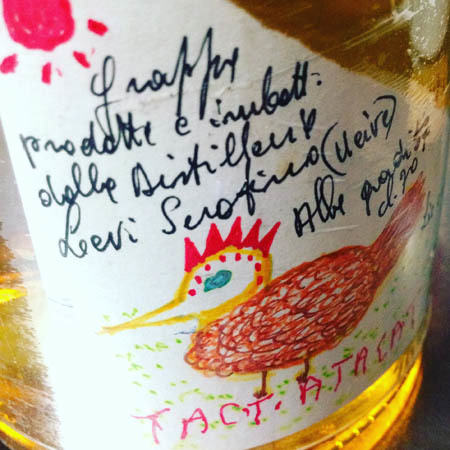 Grappa
prodotta e imbott.
dalla Distilleria
Levi Serafino (Neive)
Alla grad.
TACT. ATACAT